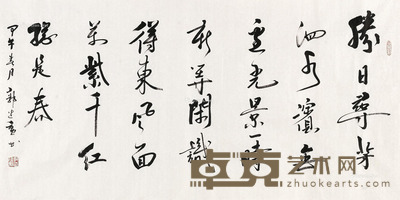 勝日尋芳
泗水濱無
邊光景一時
新等閑識
得東風面
萬紫千紅
總是春
甲午 月
卓克艺术网
zhuokearts.com